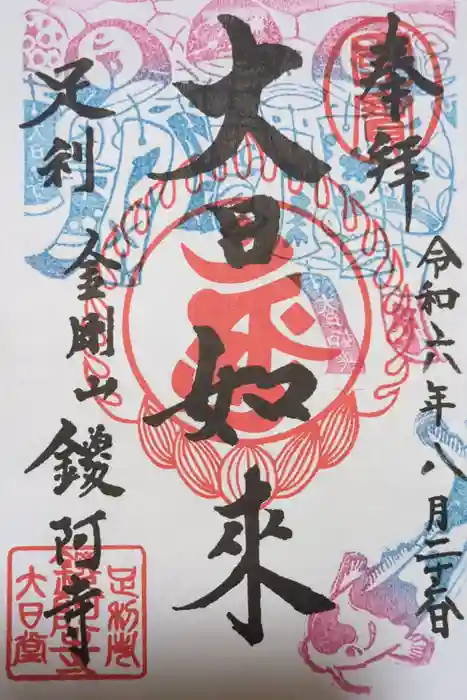 奉拝
令和六年八月二十日
大日如来
足利
金剛山 鑁阿寺
足利市
大日堂